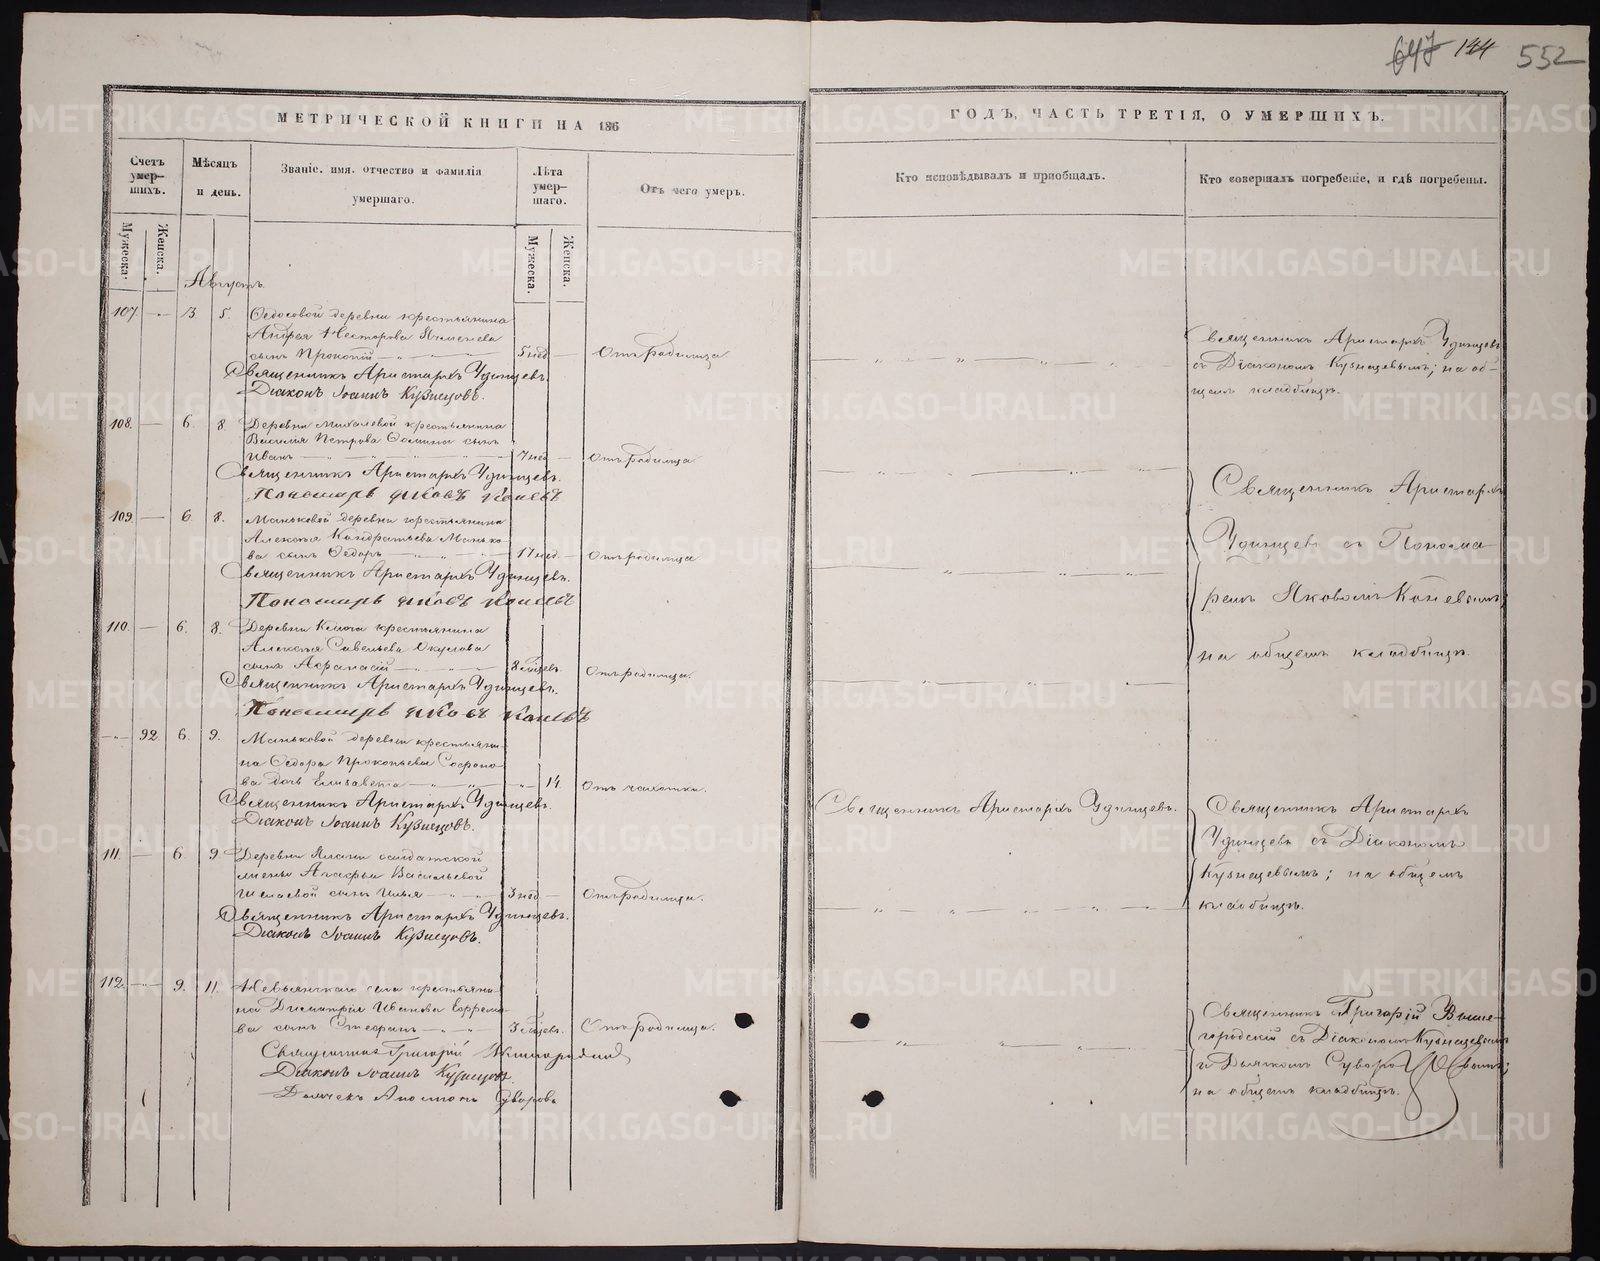 647 144 552
МЕТРИЧЕСКОЙ КНИГИ НА 186
ГОДЪ, ЧАСТЬ ТРЕТІЯ, О УМЕРШИХЪ.
Счетъ умер-шихъ.
Мѣсяцъ и день.
Званіе, имя, отчество и фамилія умершаго.
Лѣта умер-шаго.
Отъ чего умеръ.
Кто исповѣдывалъ и пріобщалъ.
Кто совершалъ погребеніе, и гдѣ погребены.
Мужеска. Женска.
Мужеска. Женска.
Августъ
107. 3. 5. Ѳедосовой деревни крестьянина
Андрея Нестерова
сынъ Прокопій 5 нед Отъ родимца
Священникъ Аристархъ Удинцевъ.
Діаконъ Іоаннъ Кузнецовъ.
Священникъ Аристархъ Удинцевъ
съ Діакономъ Кузнецовымъ; на об-
щемъ кладбищѣ.
108. 6. 8. Деревни Михалевой крестьянина
Василія Петрова Ѳомина сынъ
Иванъ 7 нед Отъ родимца
Священникъ Аристархъ Удинцевъ.
Пономарь Яковъ Коневъ
109. 6. 8. Маньковой деревни крестьянина
Алексѣя Кондратьева Манько-
ва сынъ Ѳедоръ 17 нед. Отъ родимца
Священникъ Аристархъ Удинцевъ.
Пономарь Яковъ Коневъ
110. 6. 8. Деревни Ключа крестьянина
Алексѣя Савельева Окулова
сынъ Аѳанасій 8 мѣсев. Отъ родимца.
Священникъ Аристархъ Удинцевъ.
Пономарь Яковъ Коневъ
Священникъ Аристархъ
Удинцевъ съ Понома-
ремъ Яковомъ Коневымъ;
на общемъ кладбищѣ.
92. 6. 9. Маньковой деревни крестьяни-
на Ѳедора Прокопьева Софроно-
ва дочь Елизавета 14. Отъ чахотки.
Священникъ Аристархъ Удинцевъ.
Діаконъ Іоаннъ Кузнецовъ.
Священникъ Аристархъ Удинцевъ.
111. 6. 9. Деревни солдатской
жены Агафьи Васильевой
сынъ Илья 3 нед Отъ родимца.
Священникъ Аристархъ Удинцевъ.
Діаконъ Іоаннъ Кузнецовъ.
Священникъ Аристархъ
Удинцевъ съ Діакономъ
Кузнецовымъ; на общемъ
кладбищѣ.
112. 9. 11. Невьянскаго села крестьяни-
на Димитрія Иванова Ефремо-
ва сынъ Стефанъ 3 мѣсев. Отъ родимца.
Священникъ Григорій
Діаконъ Іоаннъ Кузнецовъ.
Дьячекъ Суворовъ
Священникъ Григорій Выше-
городскій съ Діакономъ Кузнецовымъ
и Дьячкомъ Суворовымъ;
на общемъ кладбищѣ.
METRIKI.GASO-URAL.RU